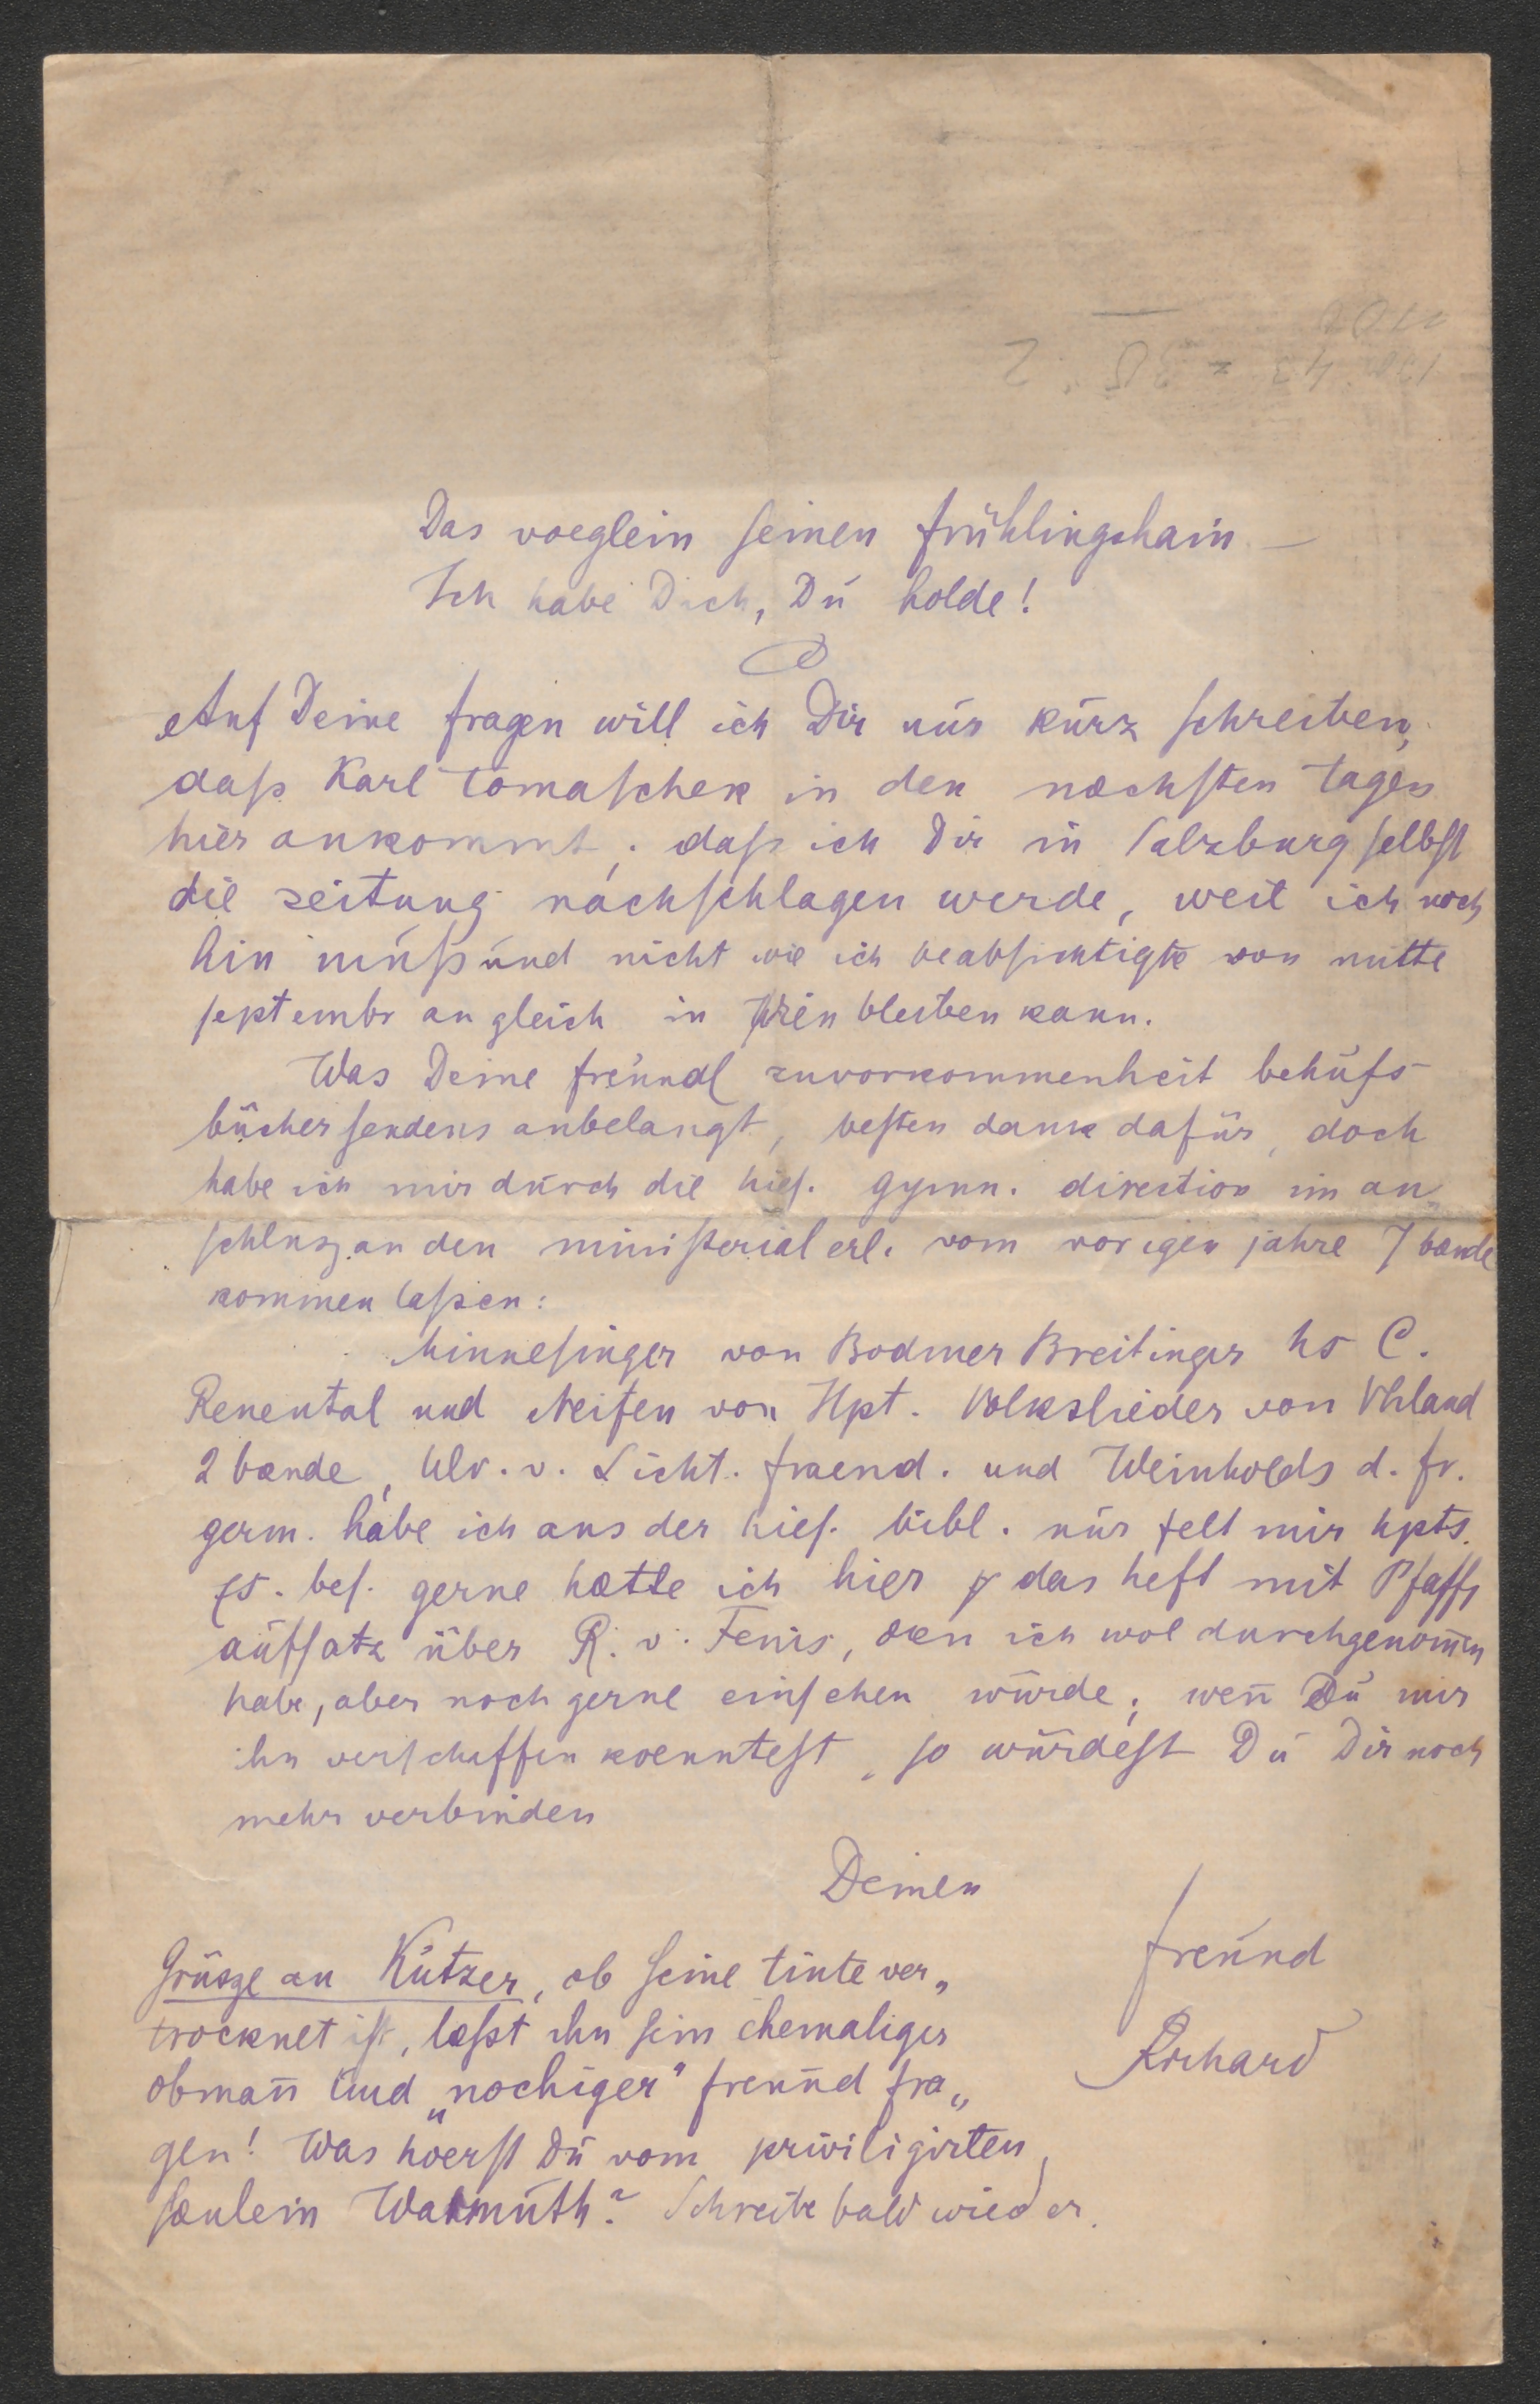 Das voeglein seinen frühlingshain —
Ich habe Dich, Du holde!
Auf Deine fragen will ich Dir nur kurz schreiben,
dass Karl Tomaschek in den næchsten tagen
hier ankommt; dass ich Dir in Salzburg selbst
die zeitung nachschlagen werde, weil ich noch
hin muss und nicht wie ich beabsichtigte von mitte
septembr an gleich in Wien bleiben kann.
Was Deine freundl zuvorkommenheit behufs
büchersendens anbelangt, besten dank dafür, doch
habe ich mir durch die hies. gymn. direction im an„
schlusz an den ministerialerl. vom vorigen jahre 7 bænde
kommen lassen:
Minnesinger von Bodmer Breitinger hs C.
Reuental und Neifen von Hpt. Volkslieder von Uhland
2 bænde, Ulr. v. Licht. fraend. und Weinholds d. fr.
germ. habe ich aus der hies. bibl. nur felt mir hpts.
zs. bes. gerne hætte ich hier das heft mit Pfaffs
aufsatz über R. v. Fenis, den ich wol durchgenom̄en
habe, aber noch gerne einsehen würde; wen̄ Du mir
ihn verschaffen koenntest, so würdest Du Dir noch
mehr verbinden
Deinen
freund
Richard
Grüsze an Kutzer, ob seine tinte ver„
trocknet ist, læsst ihn sein ehemaliger
obman̄ und „nochiger“ freund fra„
gen! Was hoerst Du vom priviligirten
sæulein Warmuth? Schreibe bald wieder.